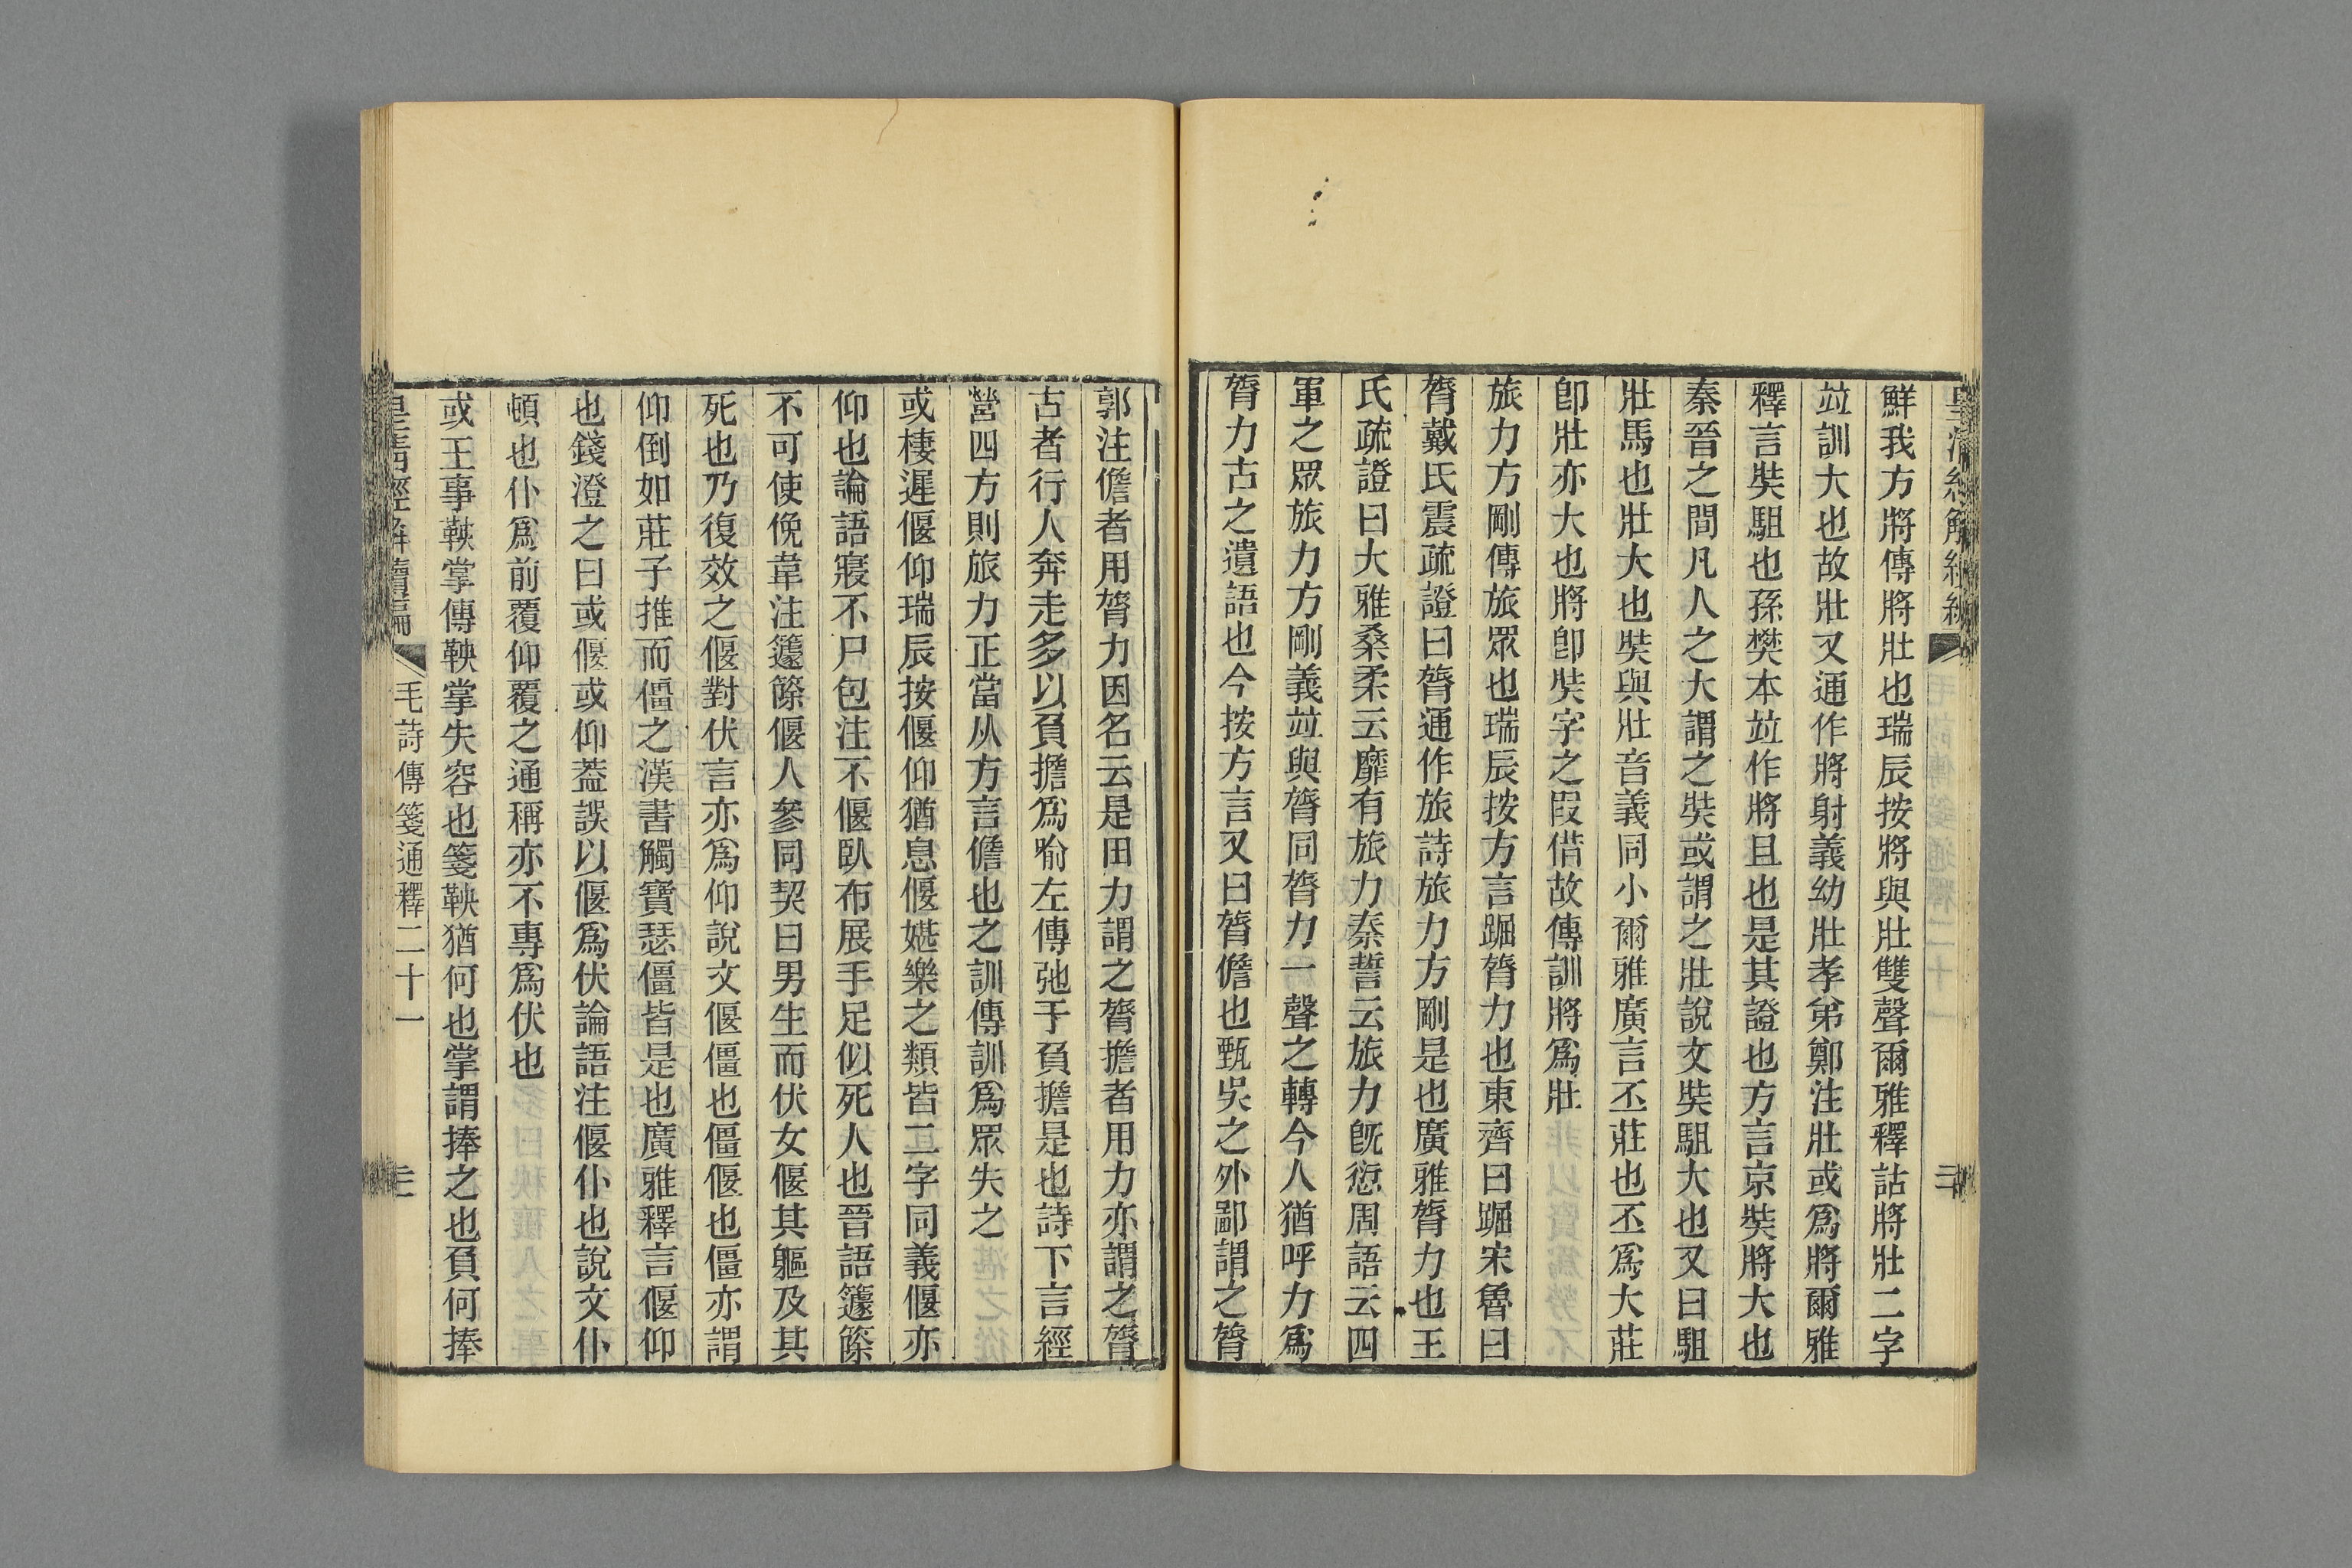 鮮我方將傳將壯也瑞辰按將與壯雙聲爾雅釋詁將壯二字
竝訓大也故壯又通作將射義幼壯孝弟鄭注壯或爲將爾雅
釋言奘駔也孫樊本竝作將且也是其證也方言京奘將大也
秦晉之間凡人之大謂之奘或謂之壯說文奘駔大也又曰駔
壯馬也壯大也奘與壯音義同小爾雅廣言丕莊也丕爲大莊
卽壯亦大也將卽奘字之叚借故傳訓將爲壯
旅力方剛傳旅眾也瑞辰按方言䠇膂力也東齊曰䠇宋魯曰
膂戴氏震疏證曰膂通作旅詩旅力方剛是也廣雅膂力也王
氏疏證曰大雅桑柔云靡有旅力秦誓云旅力旣愆周語云四
軍之眾旅力方剛義竝與膂同膂力一聲之轉今人猶呼力爲
膂力古之遺語也今按方言又曰膂儋也甄吳之外鄙謂之膂
郭注儋者用膂力因名云是田力謂之膂擔者用力亦謂之膂
古者行人奔走多以負擔爲喻左傳弛于負擔是也詩下言經
營四方則旅力正當从方言儋也之訓傳訓爲眾失之
或棲遲偃仰瑞辰按偃仰猶息偃媅樂之類皆二字同義偃亦
仰也論語寢不尸包注不偃臥布展手足似死人也晉語籧篨
不可使俛韋注籧篨偃人參同契曰男生而伏女偃其軀及其
死也乃復效之偃對伏言亦爲仰說文偃僵也僵偃也僵亦謂
仰倒如莊子推而僵之漢書觸寶瑟僵皆是也廣雅釋言偃仰
也錢澄之曰或偃或仰葢誤以偃爲伏論語注偃仆也說文仆
頓也仆爲前覆仰覆之通稱亦不專爲伏也
或王事鞅掌傳鞅掌失容也箋鞅猶何也掌謂捧之也負何捧
皇清經解續編 毛詩傳箋通釋二十一